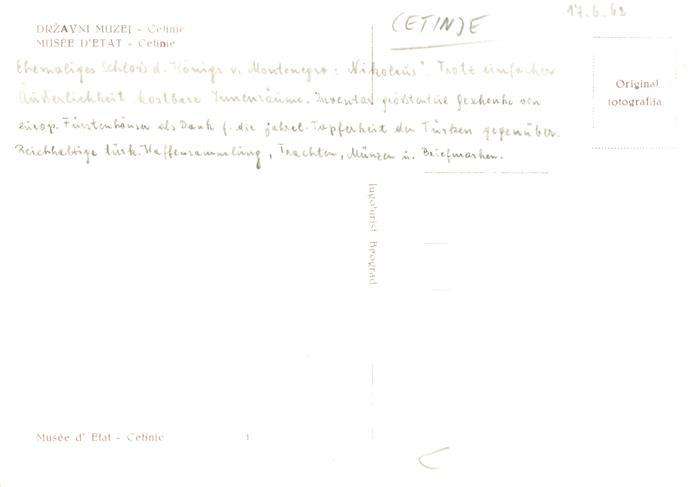 CETINJE
17.6.63
DRŽAVNI MUZEJ - Cetinje
MUSÉE D'ETAT - Cetinje
Ehemaliges Schloß d. Königs v. Montenegro: Nikolaus". Trotz einfacher
Äußerlichkeit kostbare Innenräume. Inventar größtenteils Geschenke von
europ. Fürstenhäuser als Dank f. die jahrel. Tapferheit den Türken gegenüber.
Reichhaltige türk. Waffensammlung, Trachten, Münzen u. Briefmarken.
Original
fotografija
Jugoturist Beograd
Musée d' Etat - Cetinje 1